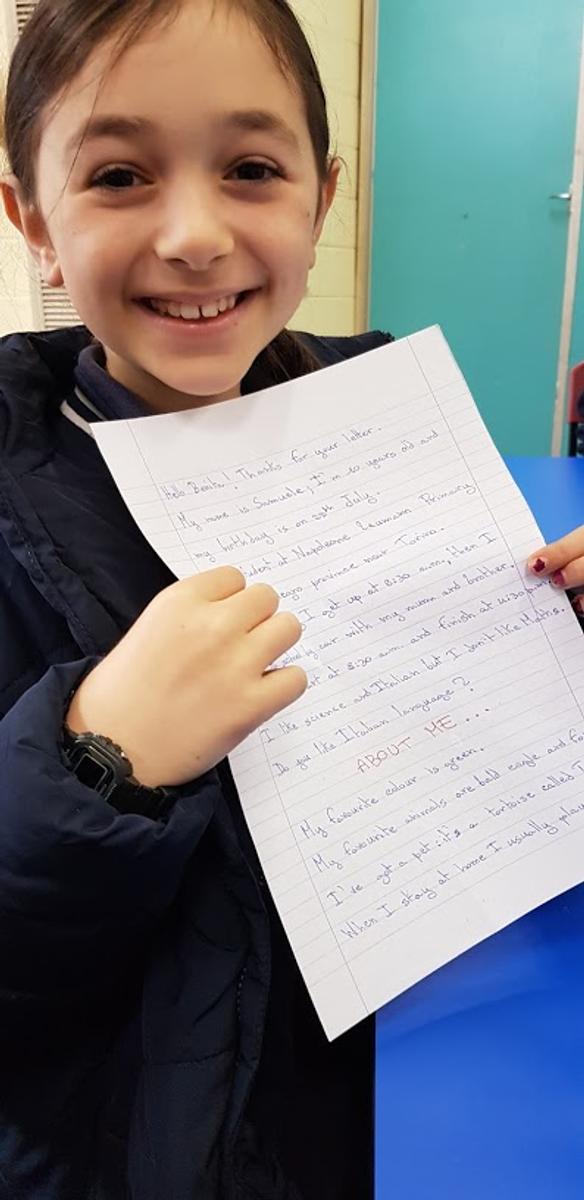 Hello Benita! Thanks for your letter.
My name is Samuele, I'm 10 years old and
my birthday is on July.
at Napoleone Leumann Primary
province near Torino.
I get up at 8:30 a.m., then I
by car with my mum and brother.
at 8:20 a.m. and finish at 4:30
I like science and Italian but I don't like Maths.
Do you like Italian language?
ABOUT ME...
My favourite colour is green.
My favourite animals are bald eagle and
I've got a pet: it's a tortoise called
When I stay at home I usually